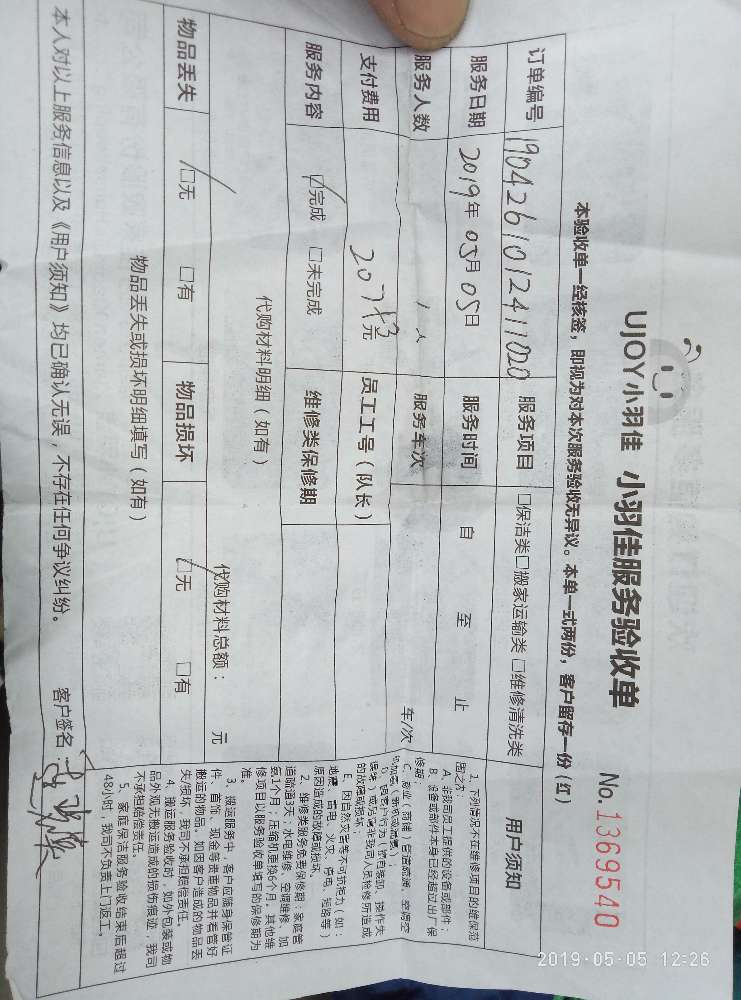 UJOY小羽佳 小羽佳服务验收单
No.1369540
本验收单一经核签，即视为对本次服务验收无异议。本单一式两份，客户留存一份（红）
订单编号 1904261012411020 服务项目 □保洁类□搬家运输类 □维修清洗类
服务日期 2019年 05月 05日 服务时间 自 至 止
服务人数 1人 服务车次 车/次
支付费用 元 员工工号（队长）
服务内容 ☑完成 □未完成 维修类保修期
代购材料明细（如有）
代购材料总额： 元
物品丢失 ☑无 □有 物品损坏 ☑无 □有
物品丢失或损坏明细填写（如有）
本人对以上服务信息以及《用户须知》均已确认无误，不存在任何争议纠纷。 客户签名：
用户须知
1、下列情况不在维修项目的维保范
围之内：
A、非我司员工提供的设备或部件；
B、设备或部件本身已经超过出厂保
修期；
的故障或损坏；
E、因自然灾害等不可抗拒力（如：
地震、雷电、火灾、停电、短路等）
原因造成的故障或损坏。
2、维修类服务免费保修期：家庭管
道疏通3天；水电维修、空调维修、加
氨1个月；压缩机更换6个月，其他维
修项目以服务验收单填写的保修期为
准。
3、搬运服务中，客户应随身保管证
件、首饰、现金等贵重物品并看管好
搬运的物品。如因客户造成的物品丢
失/损坏，我司不承担赔偿责任。
4、搬运服务验收时，如外包装或物
品外观无搬运造成的损伤痕迹，我司
不承担赔偿责任。
5、家庭保洁服务验收结束后超过
48小时，我司不负责上门返工。
2019-05-05 12:26